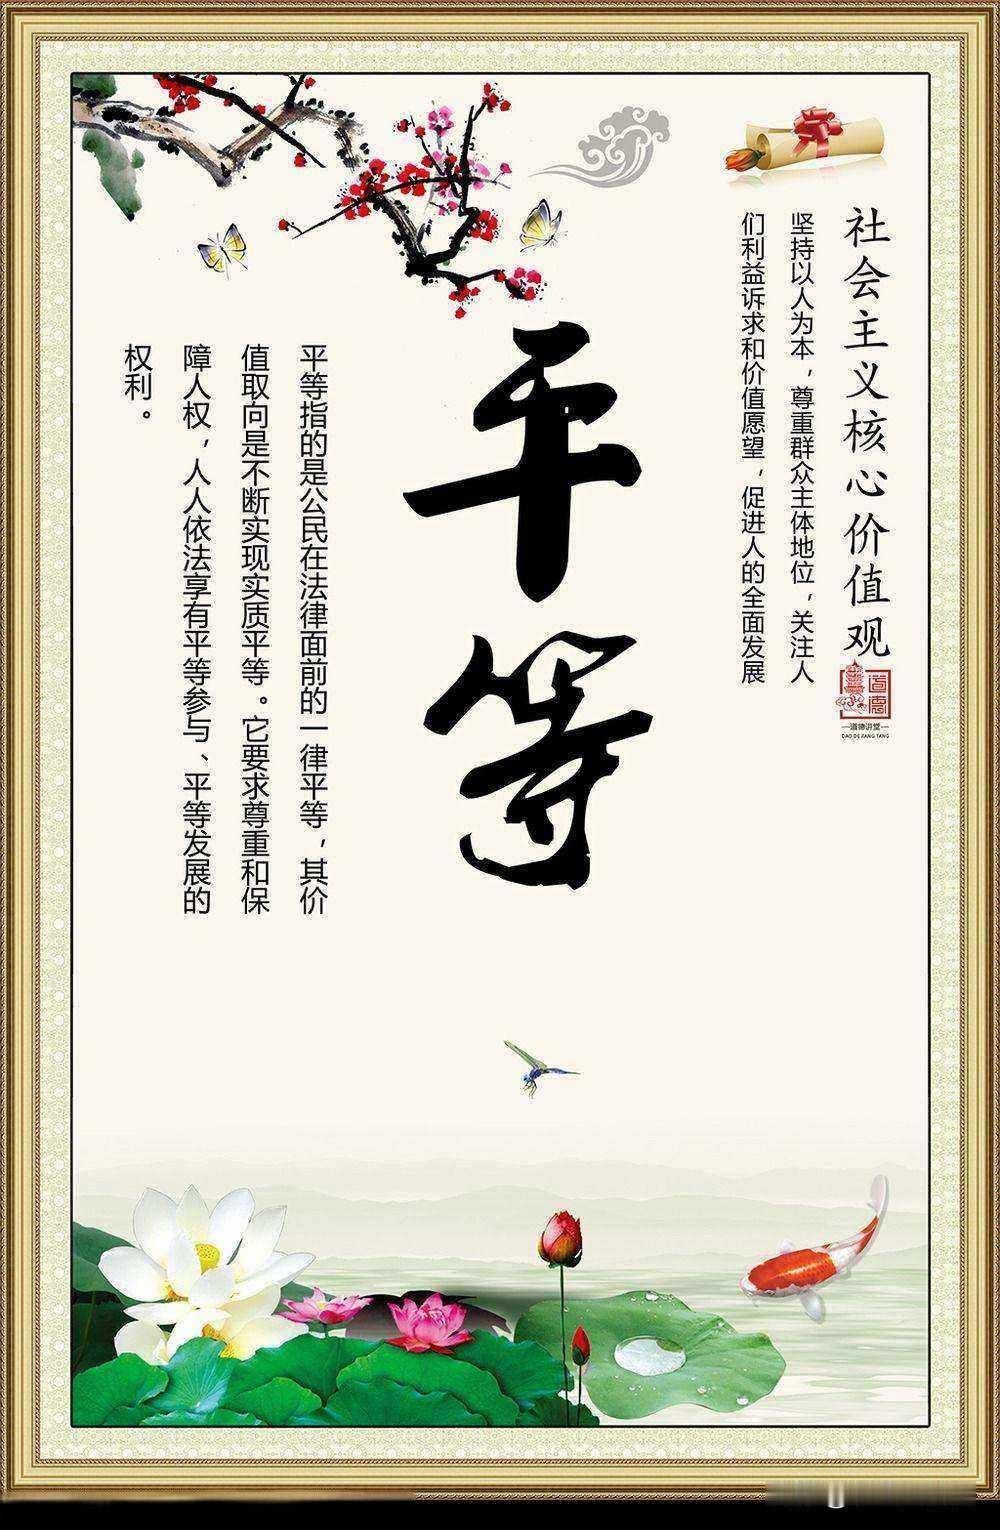 社会主义核心价值观
道德
—道德讲堂—
DAO DE JIANG TANG
坚持以人为本，尊重群众主体地位，关注人
们利益诉求和价值愿望，促进人的全面发展
平等
平等指的是公民在法律面前的一律平等，其价
值取向是不断实现实质平等。它要求尊重和保
障人权，人人依法享有平等参与、平等发展的
权利。